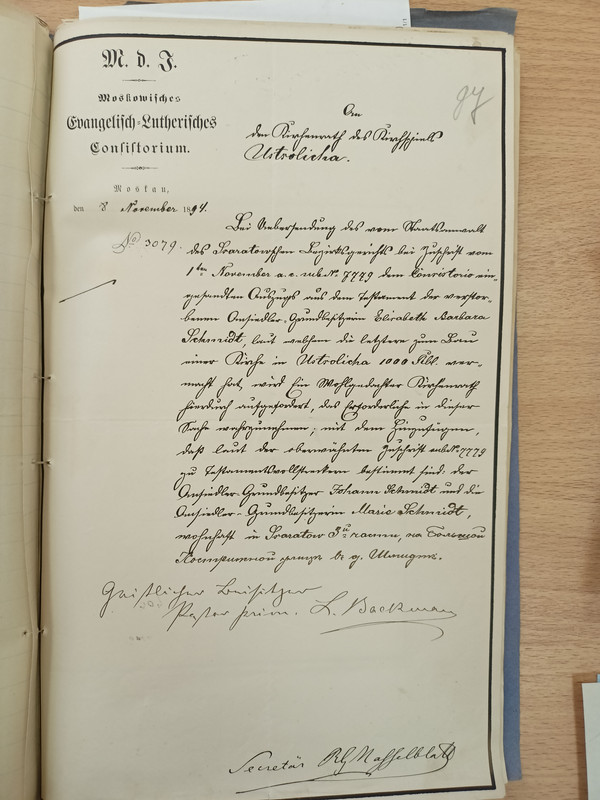 M. d. J.
Moskowisches
Evangelisch-Lutherisches
Consistorium.
Moskau,
den 8 November 1894.
No 3079.
97
An
den Kirchenrath des Kirchspiels
Ustsolicha.
Bei Uebersendung des vom Staatsanwalt
des Saratowschen Bezirksgerichts bei Zuschrift vom
1ten November a. c. sub No 7779 dem Consistorio ein-
gesandten Auszugs aus dem Testament der verstor-
benen Ansiedler-Grundbesitzerin Elisabeth Barbara
Schmidt, laut welchem die letztere zum Bau
einer Kirche in Ustsolicha 1000 Rbl. ver-
macht hat, wird Ein Wohlgedachter Kirchenrath
hierdurch aufgefordert, das Erforderliche in dieser
Sache wahrzunehmen; mit dem Hinzufügen,
daß laut der obenerwähnten Zuschrift sub No. 7779
zu Testamentsvollstreckern bestimmt sind: der
Ansiedler-Grundbesitzer Johann Schmidt und die
Ansiedler-Grundbesitzerin Marie Schmidt,
wohnhaft in Saratow 3й части, на Большой
Кострижной улице в д. Шмидт.
Geistlicher Beisitzer
Pastor prim. L. Backman
Secretär Hasselblatt